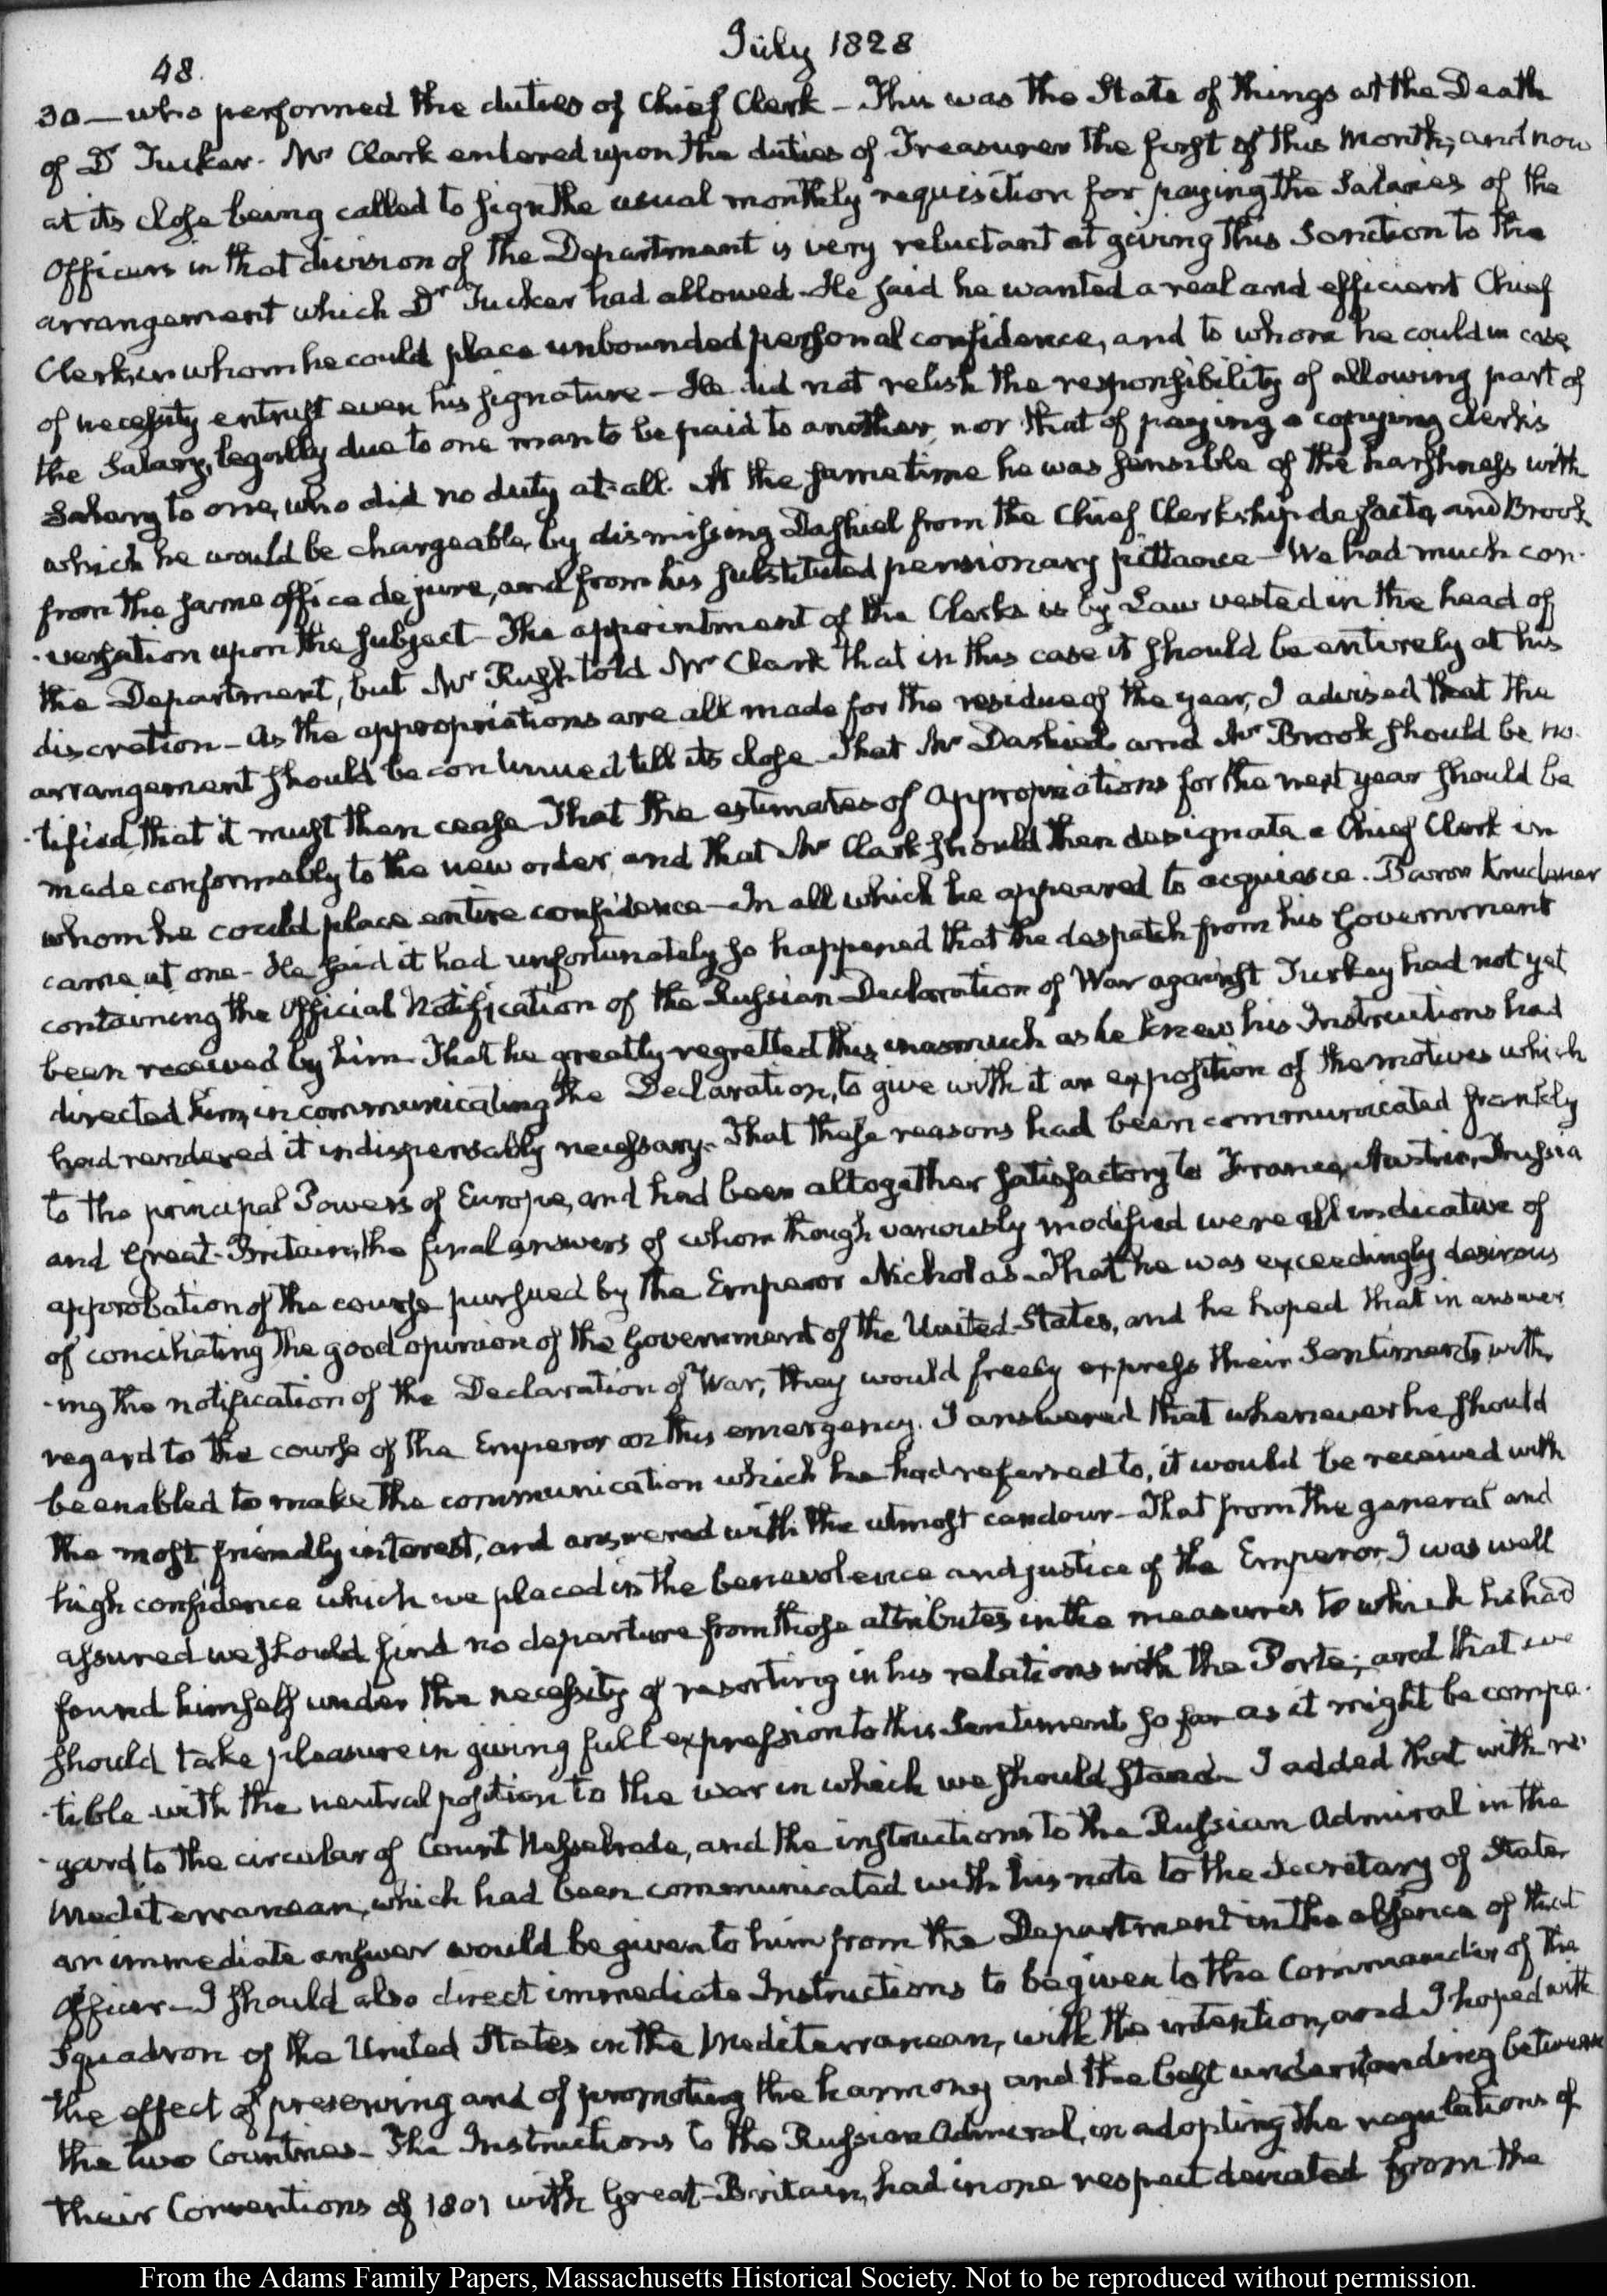 July 1828
48.
30 — who performed the duties of Chief Clerk — This was the State of things at the Death
of Dr Tucker. Mr Clark entered upon the duties of Treasurer the first of this Month; and now
at its close being called to sign the usual monthly requisition for paying the Salaries of the
Officers in that division of the Department is very reluctant at giving this Sanction to the
arrangement which Dr Tucker had allowed. He said he wanted a real and efficient Chief
Clerk, in whom he could place unbounded personal confidence, and to whom he could in case
of necessity entrust even his signature — He did not relish the responsibility of allowing part of
the Salary, legally due to one man to be paid to another, nor that of paying a copying clerk's
Salary to one, who did no duty at all. At the same time he was sensible of the harshness with
which he would be chargeable, by dismissing Dashiel from the Chief Clerkship de facto, and Brook
from the same office de jure, and from his substituted pensionary pittance — We had much con-
-versation upon the subject — The appointment of the Clerks is by Law vested in the head of
the Department, but Mr Rush told Mr Clark that in this case it should be entirely at his
discretion — As the appropriations are all made for the residue of the year, I advised that the
arrangement should be continued till its close — That Mr Dashiel and Mr Brook should be no-
-tified that it must then cease — That the estimates of appropriations for the next year should be
made conformably to the new order, and that Mr Clark should then designate a Chief Clerk in
whom he could place entire confidence — In all which he appeared to acquiesce. Baron Krudener
came at one — He said it had unfortunately so happened that the despatch from his Government
containing the Official Notification of the Russian Declaration of War against Turkey had not yet
been received by him — That he greatly regretted this, inasmuch as he knew his Instructions had
directed him, in communicating the Declaration, to give with it an exposition of the motives which
had rendered it indispensably necessary. That these reasons had been communicated frankly
to the principal Powers of Europe, and had been altogether satisfactory to France, Austria, Prussia
and Great-Britain, the final answers of whom though variously modified were all indicative of
approbation of the course pursued by the Emperor Nicholas — That he was exceedingly desirous
of conciliating the good opinion of the Government of the United States, and he hoped that in answer
-ing the notification of the Declaration of War, they would freely express their Sentiments with
regard to the course of the Emperor on this emergency. I answered that whenever he should
be enabled to make the communication which he had referred to, it would be received with
the most friendly interest, and answered with the utmost candour — That from the general and
high confidence which we placed in the benevolence and justice of the Emperor I was well
assured we should find no departure from those attributes in the measures to which he had
found himself under the necessity of resorting in his relations with the Porte; and that we
should take pleasure in giving full expression to this Sentiment so far as it might be compa-
-tible with the neutral position to the war in which we should stand — I added that with re-
-gard to the circular of Count Nesselrode, and the instructions to the Russian Admiral in the
Mediterranean, which had been communicated with his note to the Secretary of State
an immediate answer would be given to him from the Department in the absence of that
Officer — I should also direct immediate Instructions to be given to the Commander of the
Squadron of the United States in the Mediterranean, with the intention, and I hoped with
the effect of preserving and of promoting the harmony and the best understanding between
the two Countries — The Instructions to the Russian Admiral, in adopting the regulations of
their Conventions of 1801 with Great-Britain, had in one respect deviated from the
From the Adams Family Papers, Massachusetts Historical Society. Not to be reproduced without permission.